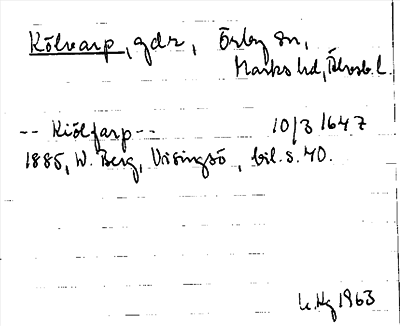 Kölvarp, gdr, Örby sn,
Marks hd, Älvsb. l.
-- Kiölfarp -- 10/3 1647
1885, W. Berg, Visingsö, bil. s. 70.
1963